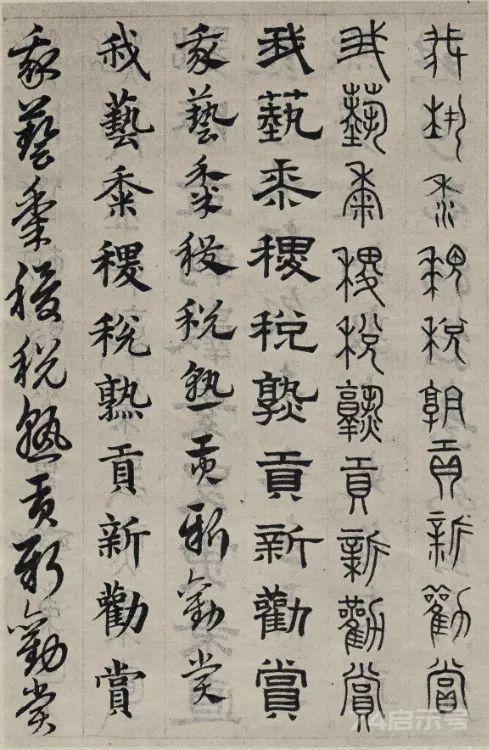 我藝黍稷稅熟貢新勸賞
我藝黍稷稅熟貢新勸賞
我藝黍稷稅熟貢新勸賞
我藝黍稷稅熟貢新勸賞
我藝黍稷稅熟貢新勸賞
我藝黍稷稅熟貢新勸賞
4启示号